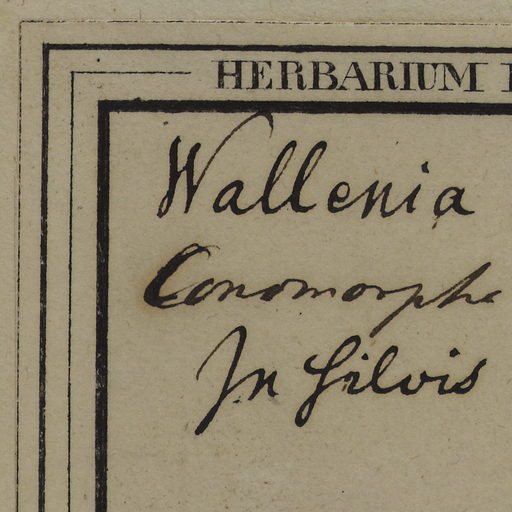 HERBARIUM
Wallenia
Conomorpha
In silvis